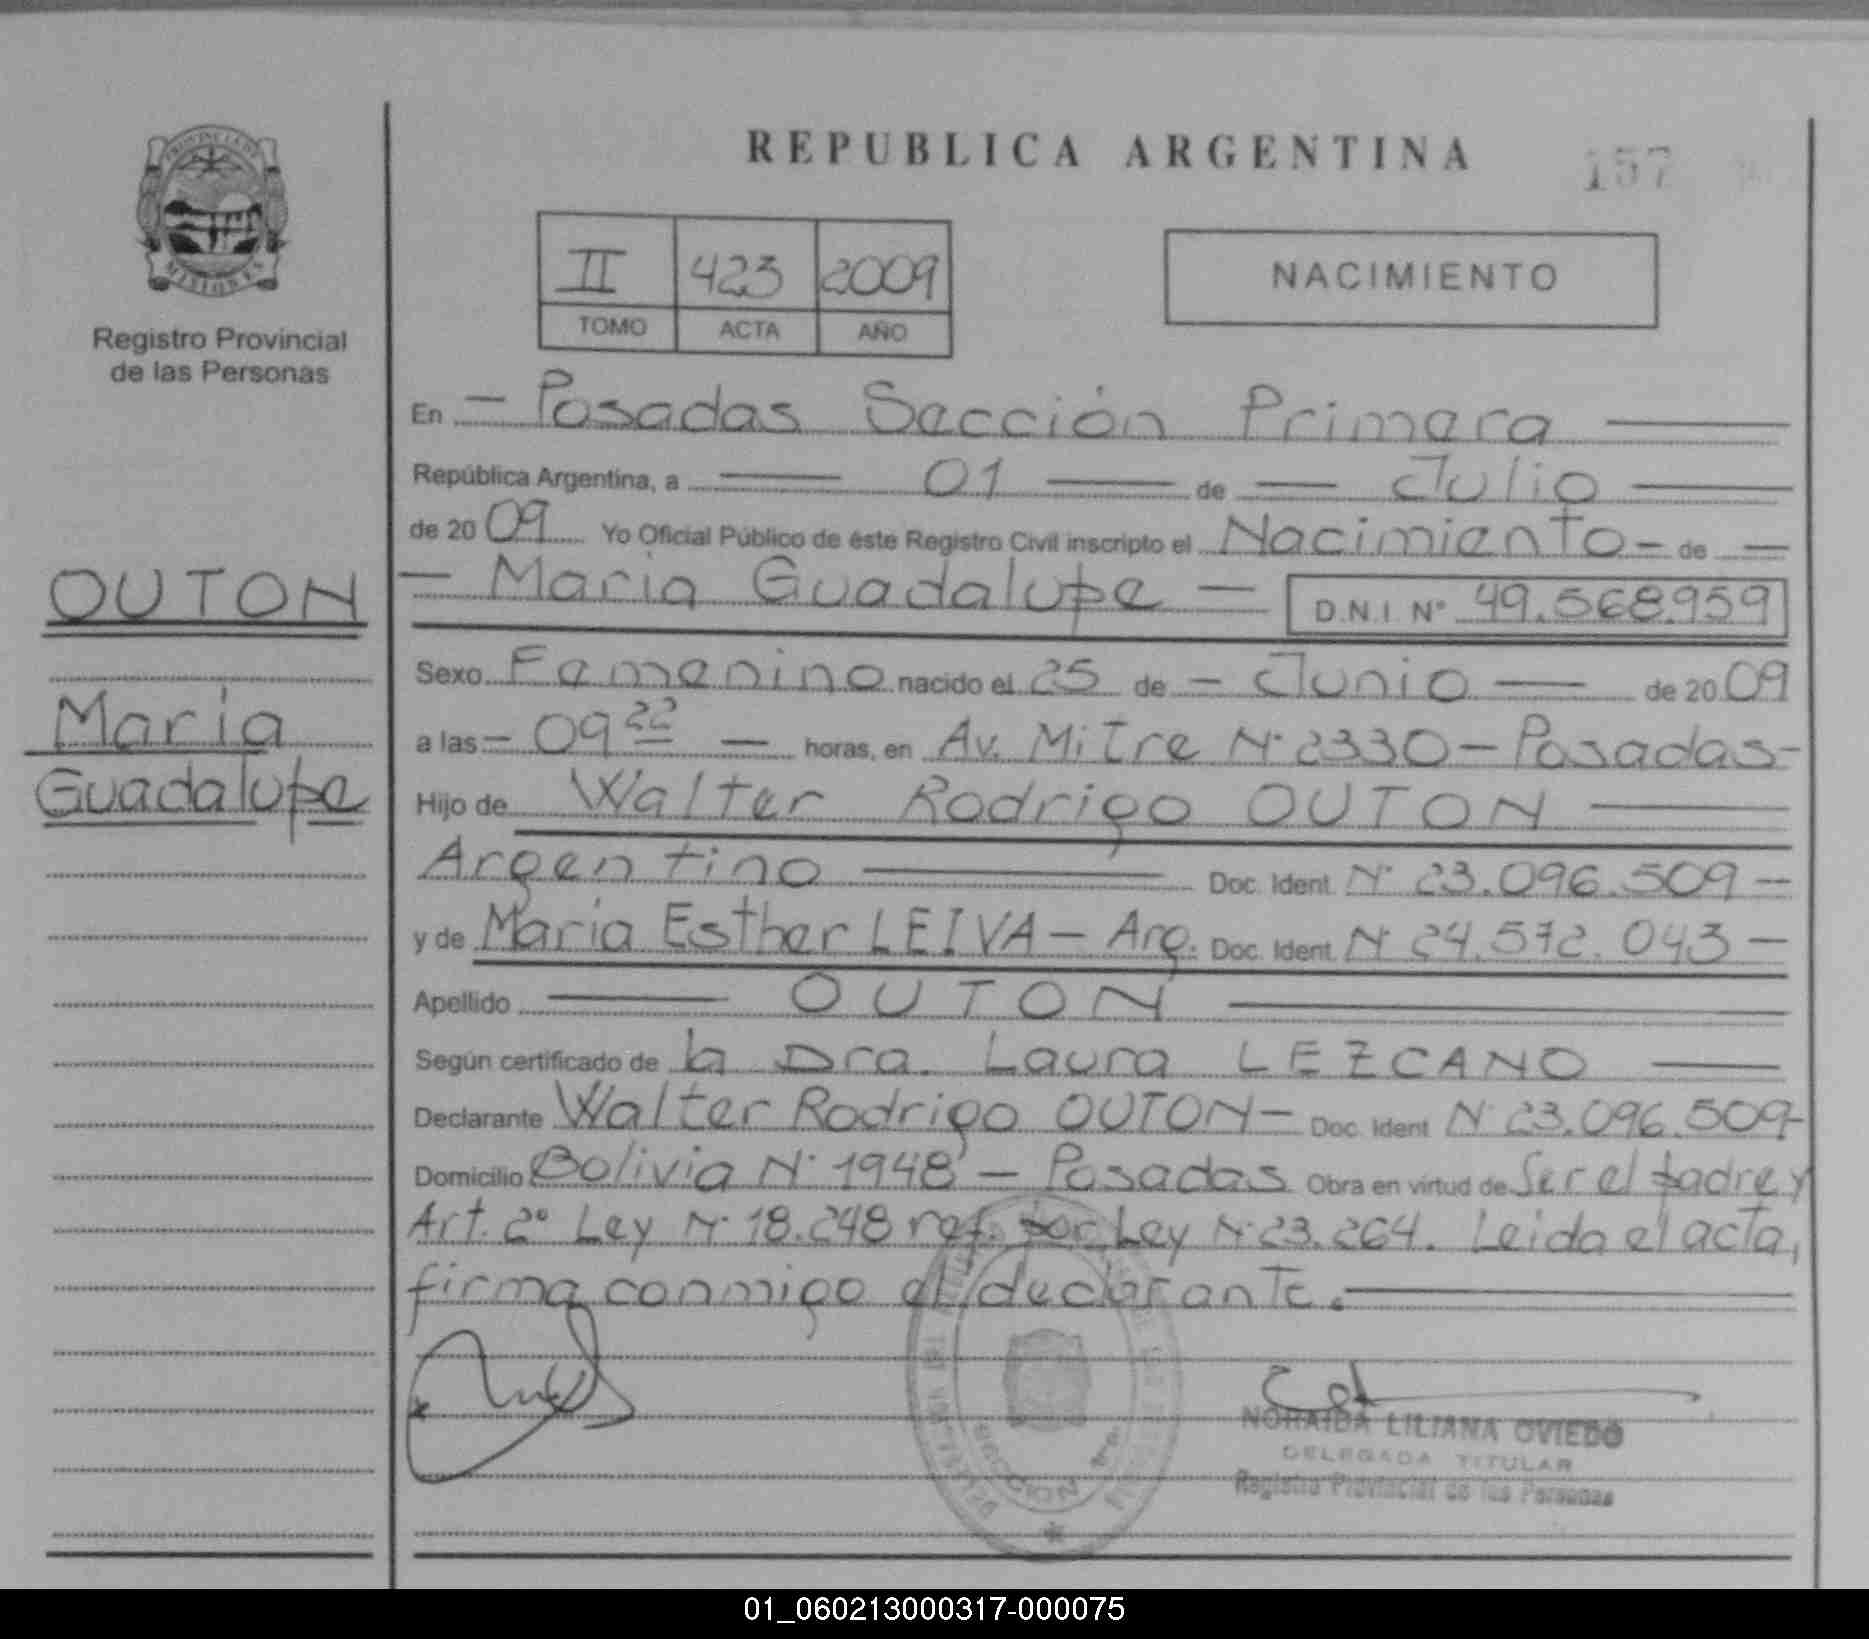 REPUBLICA ARGENTINA
157
PROVINCIA DE
MISIONES
Registro Provincial
de las Personas
II 423 2009
TOMO ACTA AÑO
NACIMIENTO
En - Posadas Sección Primera
República Argentina, a 01 de Julio
de 2009 Yo Oficial Público de éste Registro Civil inscripto el Nacimiento - de
- Maria Guadalupe - D.N.I. Nº 49.568.959
OUTON
Maria
Guadalupe
Sexo Femenino nacido el 25 de - Junio - de 2009
a las - 09 22 - horas, en Av. Mitre Nº 2330 - Posadas -
Hijo de Walter Rodrigo OUTON
Argentino Doc. Ident. Nº 23.096.509 -
y de Maria Esther LEIVA - Arg. Doc. Ident. Nº 24.572.043 -
Apellido OUTON
Según certificado de la Dra. Laura LEZCANO
Declarante Walter Rodrigo OUTON - Doc. Ident Nº 23.096.509 -
Domicilio Bolivia Nº 1948 - Posadas Obra en virtud de Ser el padre y
Art. 2º Ley Nº 18.248 ref. por Ley Nº 23.264. Leida el acta,
firma conmigo el declarante.
SECCION 1ra.
NORAIDA LILIANA OVIEDO
DELEGADA TITULAR
Registro Provincial de las Personas
01_060213000317-000075